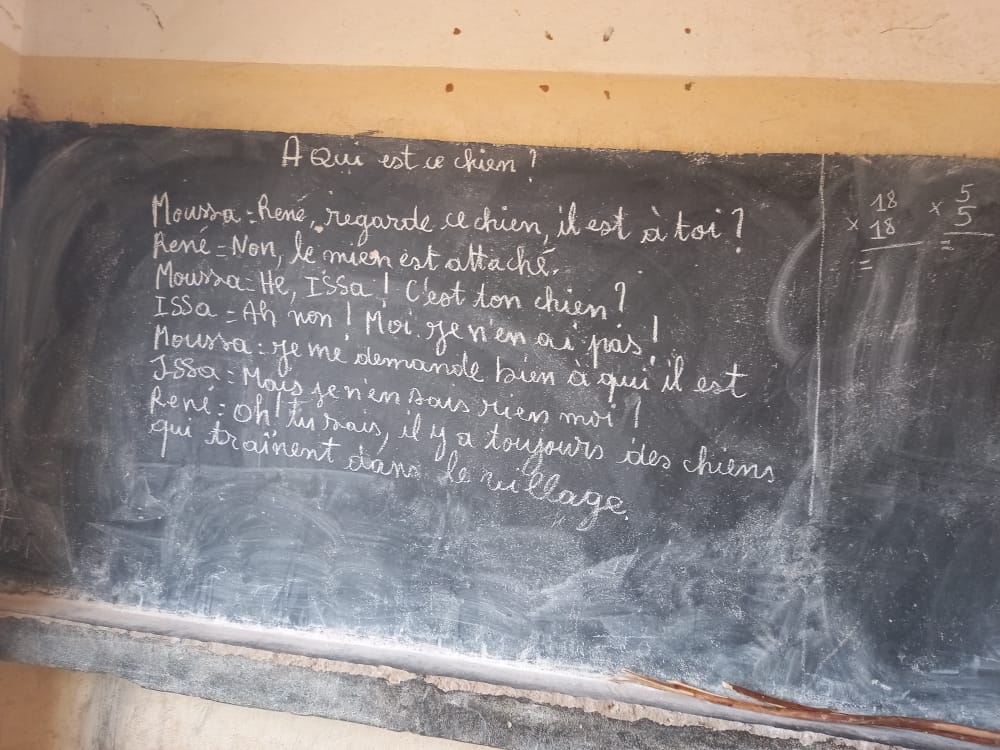 A Qui est ce chien ?
Moussa = René, regarde ce chien, il est à toi ?
René = Non, le mien est attaché.
Moussa = He, Issa ! C'est ton chien ?
Issa = Ah non ! Moi je n'en ai pas !
Moussa : je me demande bien à qui il est
Issa = Mais je n'en sais rien moi !
René = oh ! tu sais, il y a toujours des chiens
qui traînent dans le village.
18
× 18
=
× 5
5
=